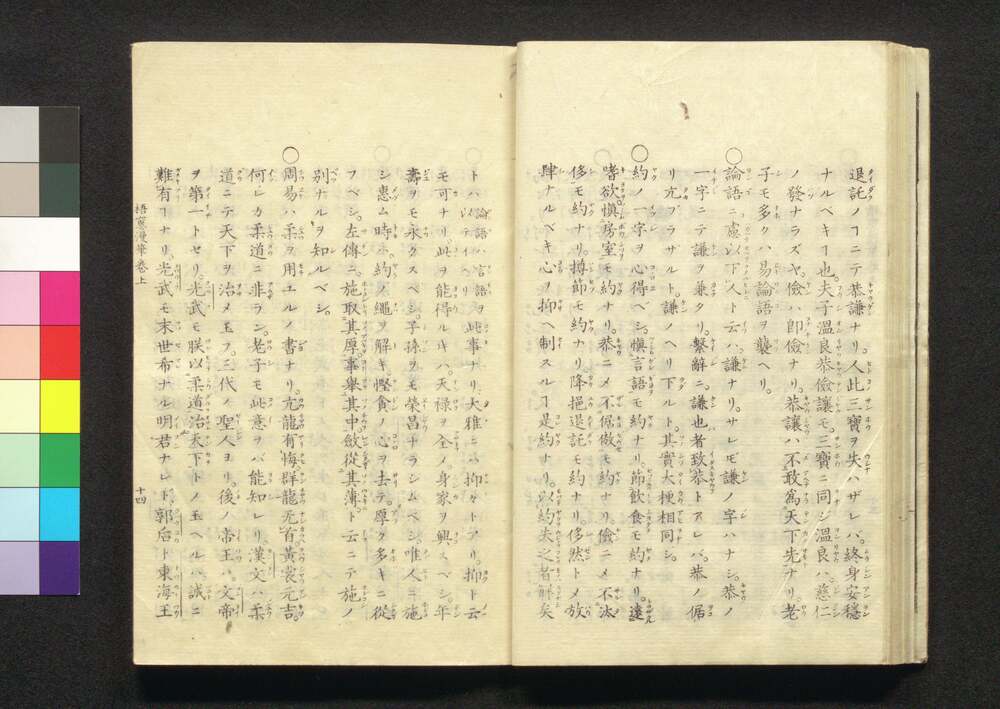 退託ノヿニテ恭謙ナリ。人此三寶ヲ失ハザレバ。終身安穩
ナルベキヿ也。夫子溫良恭儉讓モ。三寶ニ同シ溫良ハ。慈仁
ノ發ナラズヤ。儉ハ卽儉ナリ。恭讓ハ不敢爲天下先ナリ。老
子モ多クハ易論語ヲ襲ヘリ。
○論語ニ慮以下人ト云ハ。謙ナリ。サレモ謙ノ字ハナシ。恭ノ
一字ニテ謙ヲ兼タリ。繫辭ニ。謙也者致恭トアレバ。恭ノ倨
リ亢ブラサルト。謙ノヘリ下ルト。其實大梗相同シ。
○約ノ一字ヲ心得ベシ。愼言語モ約ナリ。節飮食モ約ナリ。遠
嗜欲。愼房室モ約ナリ。恭ニメ不倨傲モ約ナリ。儉ニメ不汰
侈モ約ナリ。撙節モ約ナリ降挹退託モ約ナリ。侈然トメ放
肆ナルベキ心ヲ抑ヘ制スルヿ是約ナリ。以約失之者鮮矣
トハ論語ハ言語ヲ以テイヘリ此事ナリ大雅ニハ抑々トアリ。抑ト云
モ可ナリ。此ヲ能得ルキハ。天祿ヲ全メ。身家ヲ興スベシ。年
壽ヲモ永クスベシ。子孫ヲモ榮昌ナラシムベシ。唯人ニ施
シ惠ム時ハ。約ノ繩ヲ解キ。慳貪ノ心ヲ去テ。厚ク多キニ從
フベシ。左傳ニ。施取其厚。事舉其中。斂從其薄。ト云ニテ施ノ
別ナルヲ知ルベシ。
○周易ハ柔ヲ用エルノ書ナリ。亢龍有悔。群龍无首。黃裳元吉。
何レカ柔道ニ非ラン。老子モ此意ヲバ能知レリ。漢文ハ柔
道ニテ天下ヲ治メ玉フ。三代ノ聖人ヨリ。後ノ帝王ハ。文帝
ヲ第一トセリ。光武モ朕以柔道治天下トノ玉ヘルハ。誠ニ
難有ヿナリ。光武モ末世希ナル明君ナレド。郭后ト東海王
梧窓漫筆卷上
十四